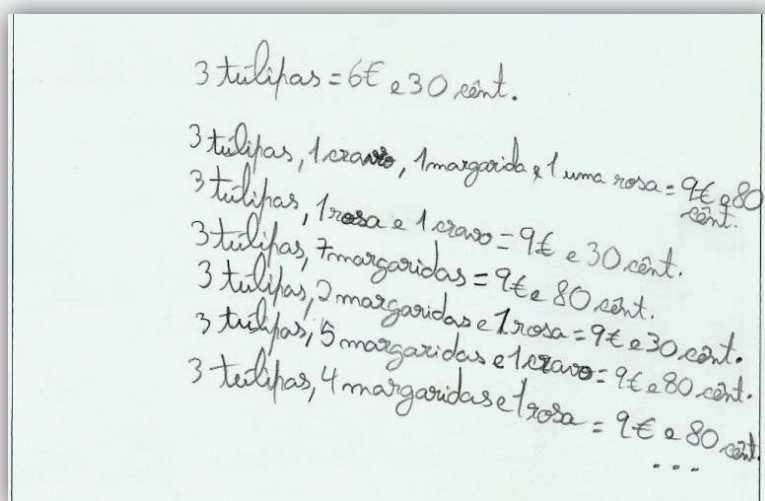 3 túlipas = 6€ e 30 cênt.
3 túlipas, 1 cravo, 1 margarida, e 1 uma rosa = 9€ e 80
cênt.
3 túlipas, 1 rosa e 1 cravo = 9€ e 30 cênt.
3 túlipas, 7 margaridas = 9€ e 80 cênt.
3 túlipas, 2 margaridas e 1 rosa = 9€ e 30 cênt.
3 túlipas, 5 margaridas e 1 cravo = 9€ e 80 cênt.
3 túlipas, 4 margaridas e 1 rosa = 9€ e 80 cênt.
...